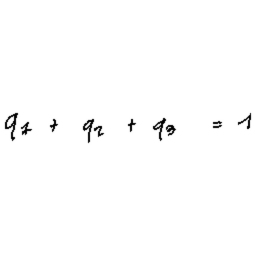 q₁ + q₂ + q₃ = 1